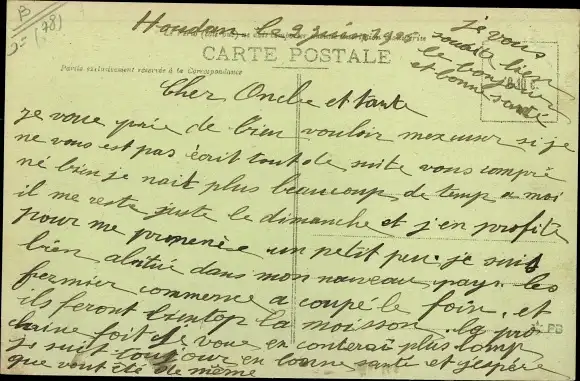 B
(78)
Houdan le 2 juin 1906
CARTE POSTALE
Partie exclusivement réservée à la Correspondance
je vous
souaite bien
le bonjour
et bonne santé
Cher Oncle et tante
je vous prie de bien vouloir mexcuser si je
ne vous est pas écrit tout de suite vous compre
né bien je nait plus beaucoup de temp a moi
il me reste juste le dimanche et j'en profite
pour me promenée un petit peu je suis
bien abitué dans mon nouveau pays les
fermier commence a coupé le foin et
ils feront bientop la moisson la pro
chaine foit je vous en conterai plus lomp
je suit toujour en bonne santé et j'espère
que vout été de même